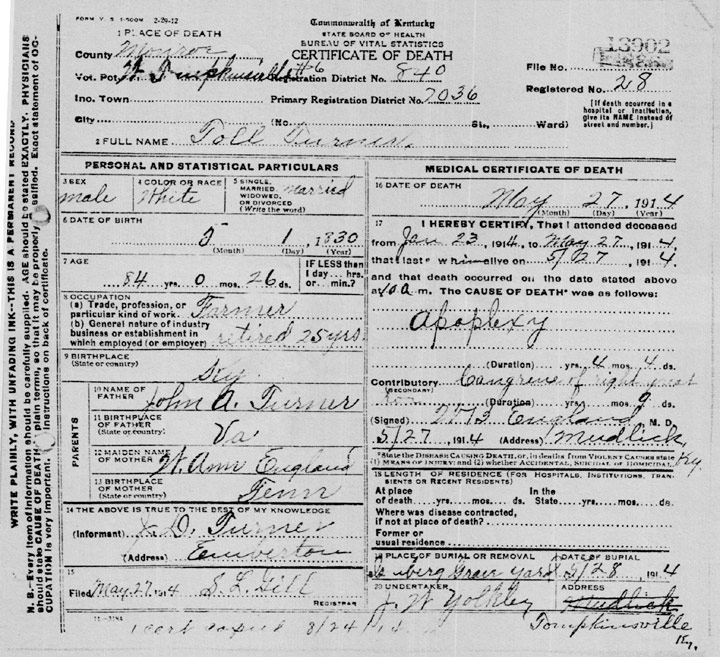 FORM V. S. 1-500M 2-29-12
Commonwealth of Kentucky
STATE BOARD OF HEALTH
BUREAU OF VITAL STATISTICS
CERTIFICATE OF DEATH
1 PLACE OF DEATH
County Monroe
Vot. Pct. W. Tompkinsville #6 Registration District No. 840
Inc. Town Primary Registration District No. 7036
City (No. St., Ward)
File No. 13902
Registered No. 28
[If death occurred in a hospital or institution, give its NAME instead of street and number.]
2 FULL NAME Toll Turner.
PERSONAL AND STATISTICAL PARTICULARS
3 SEX male
4 COLOR OR RACE White
5 SINGLE, MARRIED, WIDOWED, OR DIVORCED (Write the word) married
6 DATE OF BIRTH 5 1, 1830
(Month) (Day) (Year)
7 AGE 84 yrs. 0 mos. 26 ds.
IF LESS than 1 day... hrs. or ... min.?
8 OCCUPATION
(a) Trade, profession, or particular kind of work. Farmer
(b) General nature of industry business or establishment in which employed (or employer) retired 25 yrs.
9 BIRTHPLACE
(State or country) Ky
PARENTS
10 NAME OF FATHER John A. Turner
11 BIRTHPLACE OF FATHER (State or country) Va
12 MAIDEN NAME OF MOTHER Ann England
13 BIRTHPLACE OF MOTHER (State or country) Tenn
14 THE ABOVE IS TRUE TO THE BEST OF MY KNOWLEDGE
(Informant) D. Turner
(Address)
15
Filed May 27, 1914 S. L. Gill
REGISTRAR
11-3184
1 cert copied 8/24/14
MEDICAL CERTIFICATE OF DEATH
16 DATE OF DEATH May 27, 1914
(Month) (Day) (Year)
17 I HEREBY CERTIFY, That I attended deceased
from Jan 23, 1914, to May 27, 1914
that I last saw him alive on 5/27, 1914.
and that death occurred on the date stated above
at 10 a. m. The CAUSE OF DEATH* was as follows:
Apoplexy
(Duration) yrs. 4 mos. 4 ds.
Contributory of right great
(SECONDARY)
(Duration) yrs. mos. 9 ds.
(Signed) England, M. D.
5/27, 1914 (Address) Mudlick, Ky.
*State the DISEASE CAUSING DEATH, or, in deaths from VIOLENT CAUSES state (1) MEANS OF INJURY; and (2) whether ACCIDENTAL, SUICIDAL OR HOMICIDAL.
18 LENGTH OF RESIDENCE (FOR HOSPITALS, INSTITUTIONS, TRANSIENTS OR RECENT RESIDENTS)
At place of death yrs. mos. ds. In the State yrs. mos. ds.
Where was disease contracted, if not at place of death?
Former or usual residence
19 PLACE OF BURIAL OR REMOVAL Grave Yard
DATE OF BURIAL 5/28, 1914
20 UNDERTAKER J. W. Yokley
ADDRESS Mudlick
Tompkinsville
Ky.
N. B.—Every item of information should be carefully supplied. AGE should be stated EXACTLY. PHYSICIANS should state CAUSE OF DEATH in plain terms, so that it may be properly classified. Exact statement of OCCUPATION is very important. Instructions on back of certificate.
WRITE PLAINLY, WITH UNFADING INK—THIS IS A PERMANENT RECORD